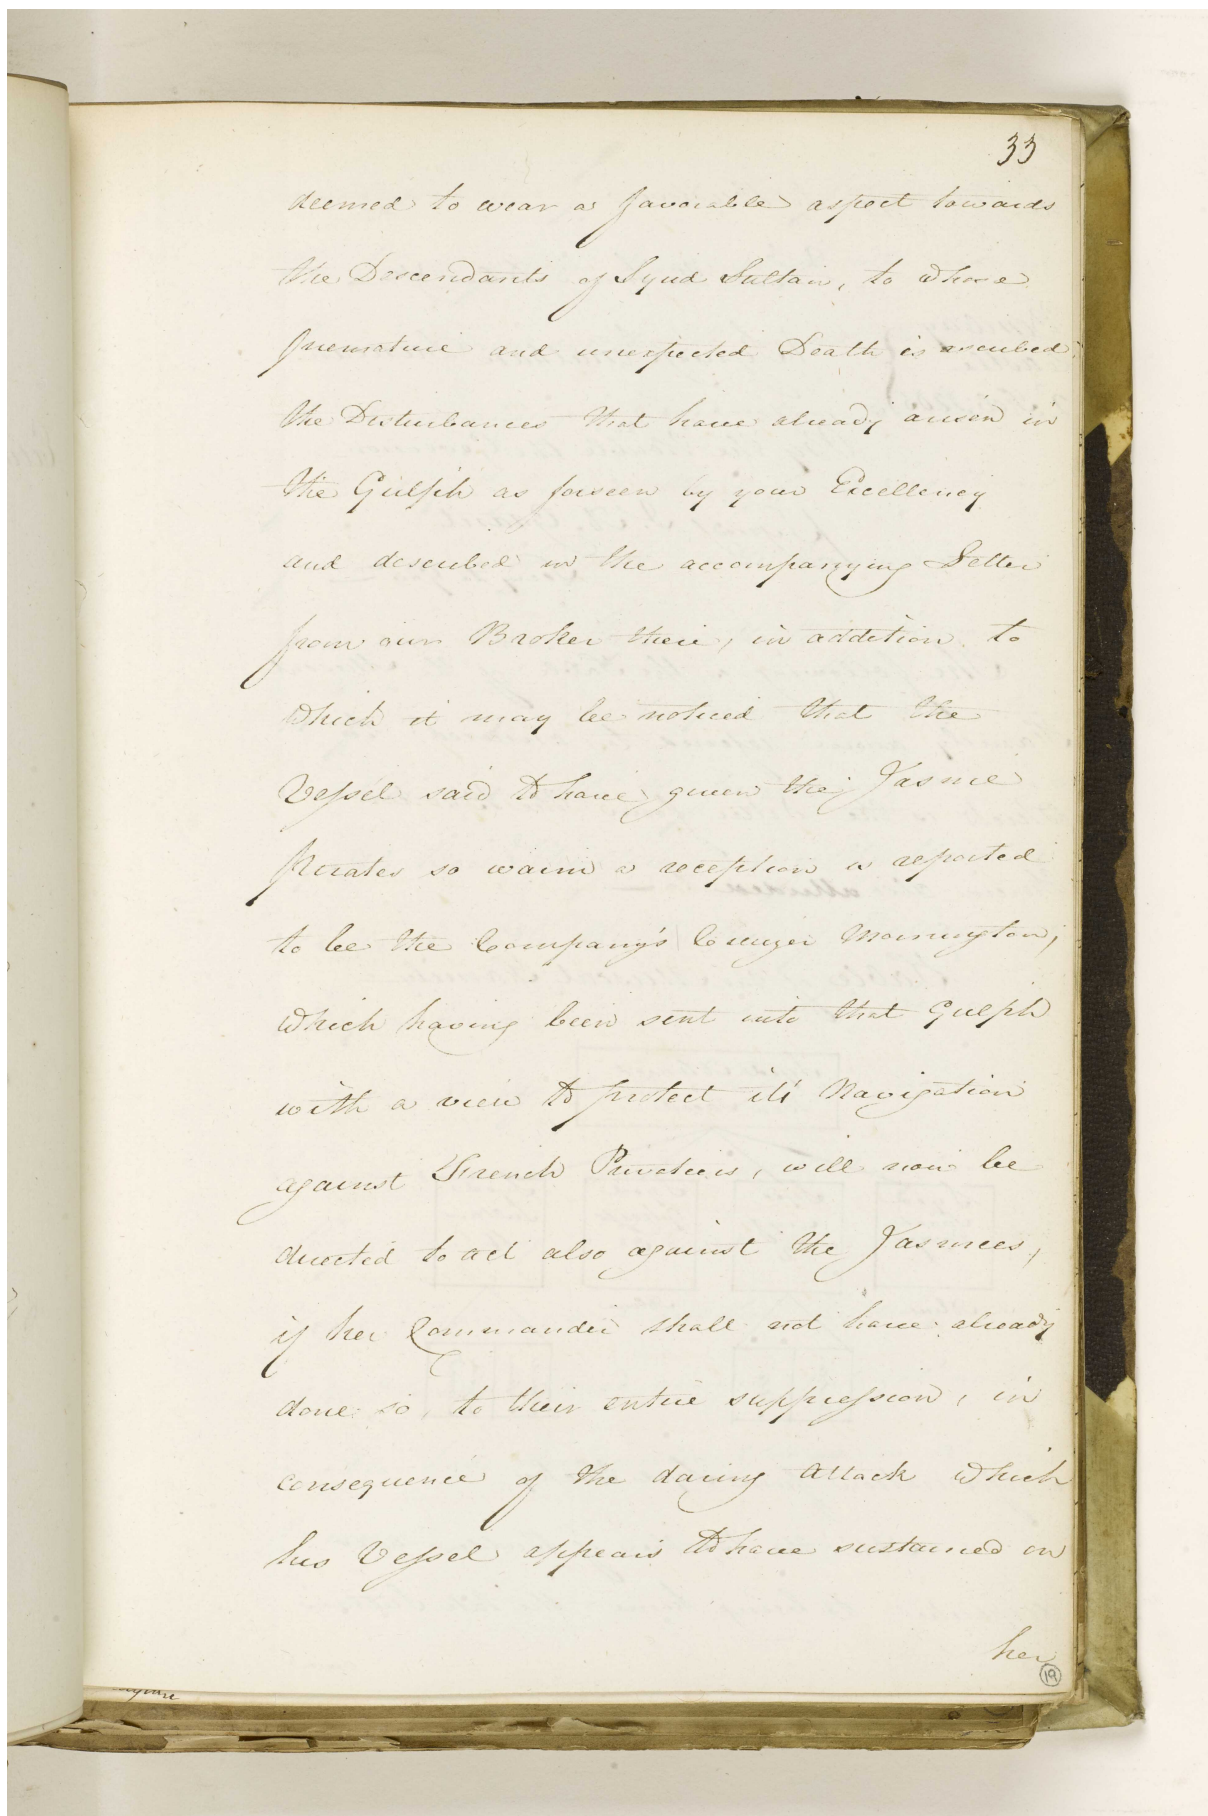 33
deemed to wear a favorable aspect towards
the Descendants of Syud Sultan, to whose
premature and unexpected Death is ascribed
the Disturbances that have already arisen in
the Gulph as forseen by your Excellency
and described in the accompanying Letter
from our Broker there, in addition to
which it may be noticed that the
Vessel said to have given the Joasmie
Pirates so warm a reception is reported
to be the Company's Cruizer Mornington,
which having been sent into that Gulph
with a view to protect its Navigation
against French Privateers, will now be
directed to act also against the Joasmees,
if her Commander shall not have already
done so, to their entire suppression, in
consequence of the daring Attack which
his Vessel appears to have sustained on
her
19